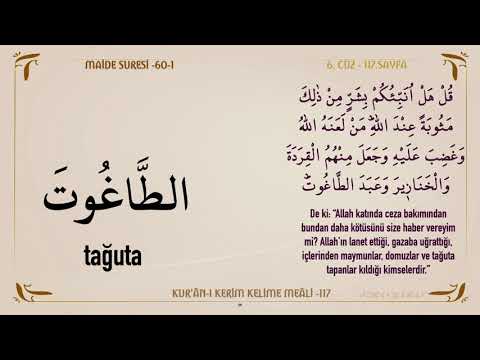 MAİDE SURESİ -60-1
6. CÜZ - 117.SAYFA
قُلْ هَلْ اُنَبِّئُكُمْ بِشَرٍّ مِنْ ذٰلِكَ
مَثُوبَةً عِنْدَ اللّٰهِۜ مَنْ لَعَنَهُ اللّٰهُ
وَغَضِبَ عَلَيْهِ وَجَعَلَ مِنْهُمُ الْقِرَدَةَ
وَالْخَنَاز۪يرَ وَعَبَدَ الطَّاغُوتَۜ
الطَّاغُوتَ
tağuta
De ki: “Allah katında ceza bakımından
bundan daha kötüsünü size haber vereyim
mi? Allah'ın lanet ettiği, gazaba uğrattığı,
içlerinden maymunlar, domuzlar ve tağuta
tapanlar kıldığı kimselerdir.”
KUR'ÂN-I KERİM KELİME MEÂLİ -117